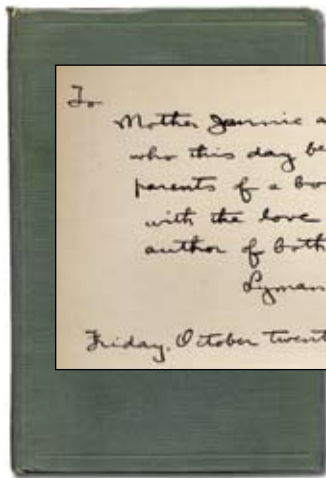 To
Mother Jennie a
who this day be
parents of a bo
with the love
author of both
Lyman
Friday, October twent